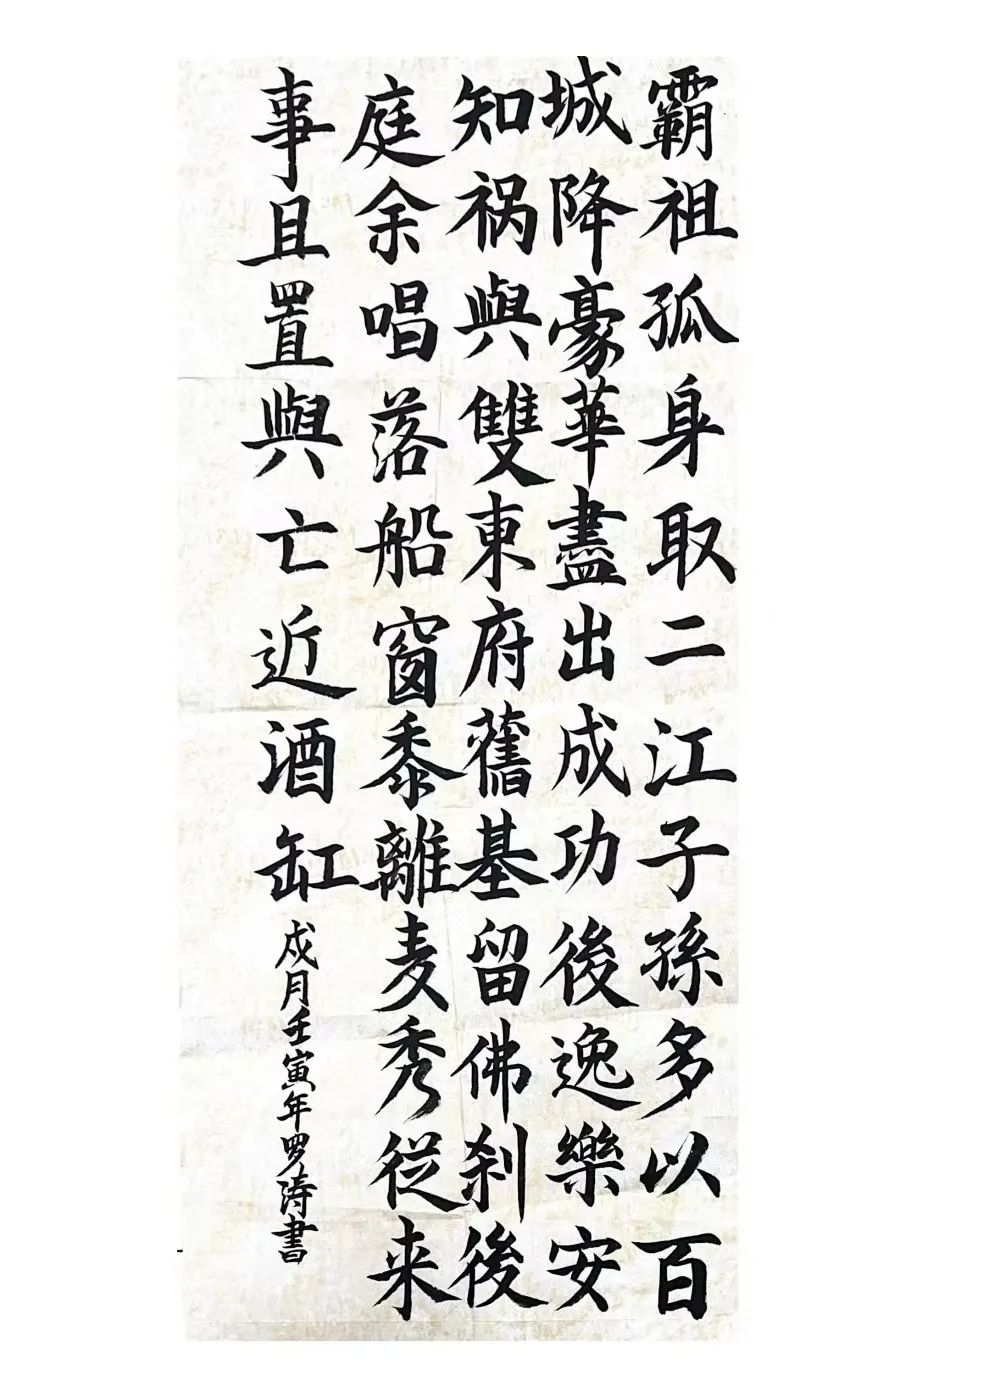 霸祖孤身取二江子孫多以百
城降豪華盡出成功後逸樂安
知祸與雙東府舊基留佛刹後
庭余唱落船窗黍離麦秀従来
事且置與亡近酒缸
戍月壬寅年罗涛書